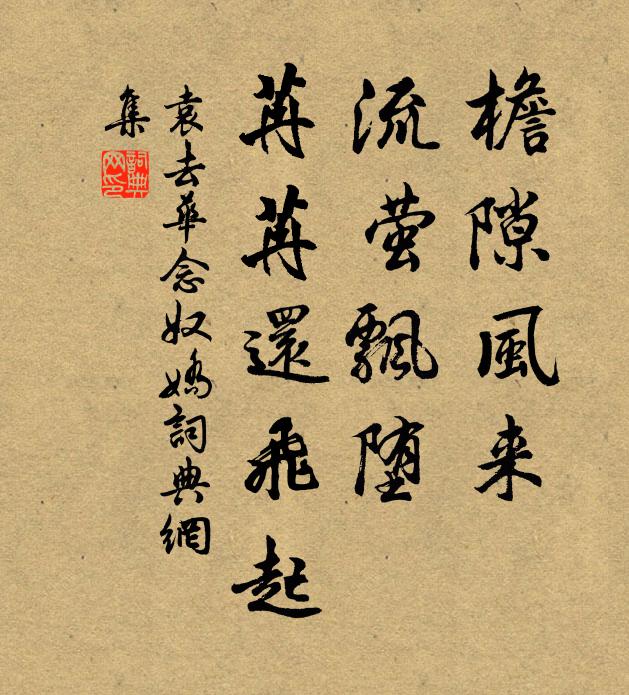 檐隙風来
流萤飄堕
苒苒還飛起
袁去華念奴嬌詞典網
集
詞典
网印